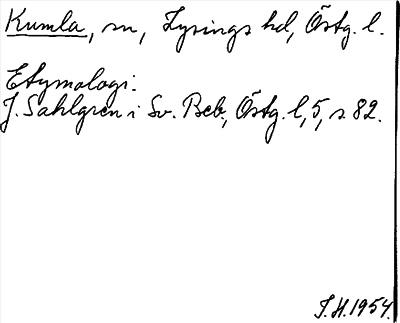 Kumla, sn, Lysings hd, Östg. l.
Etymologi.
J. Sahlgren i Sv. Beb., Östg. l, 5, s 82.
J. H. 1954.